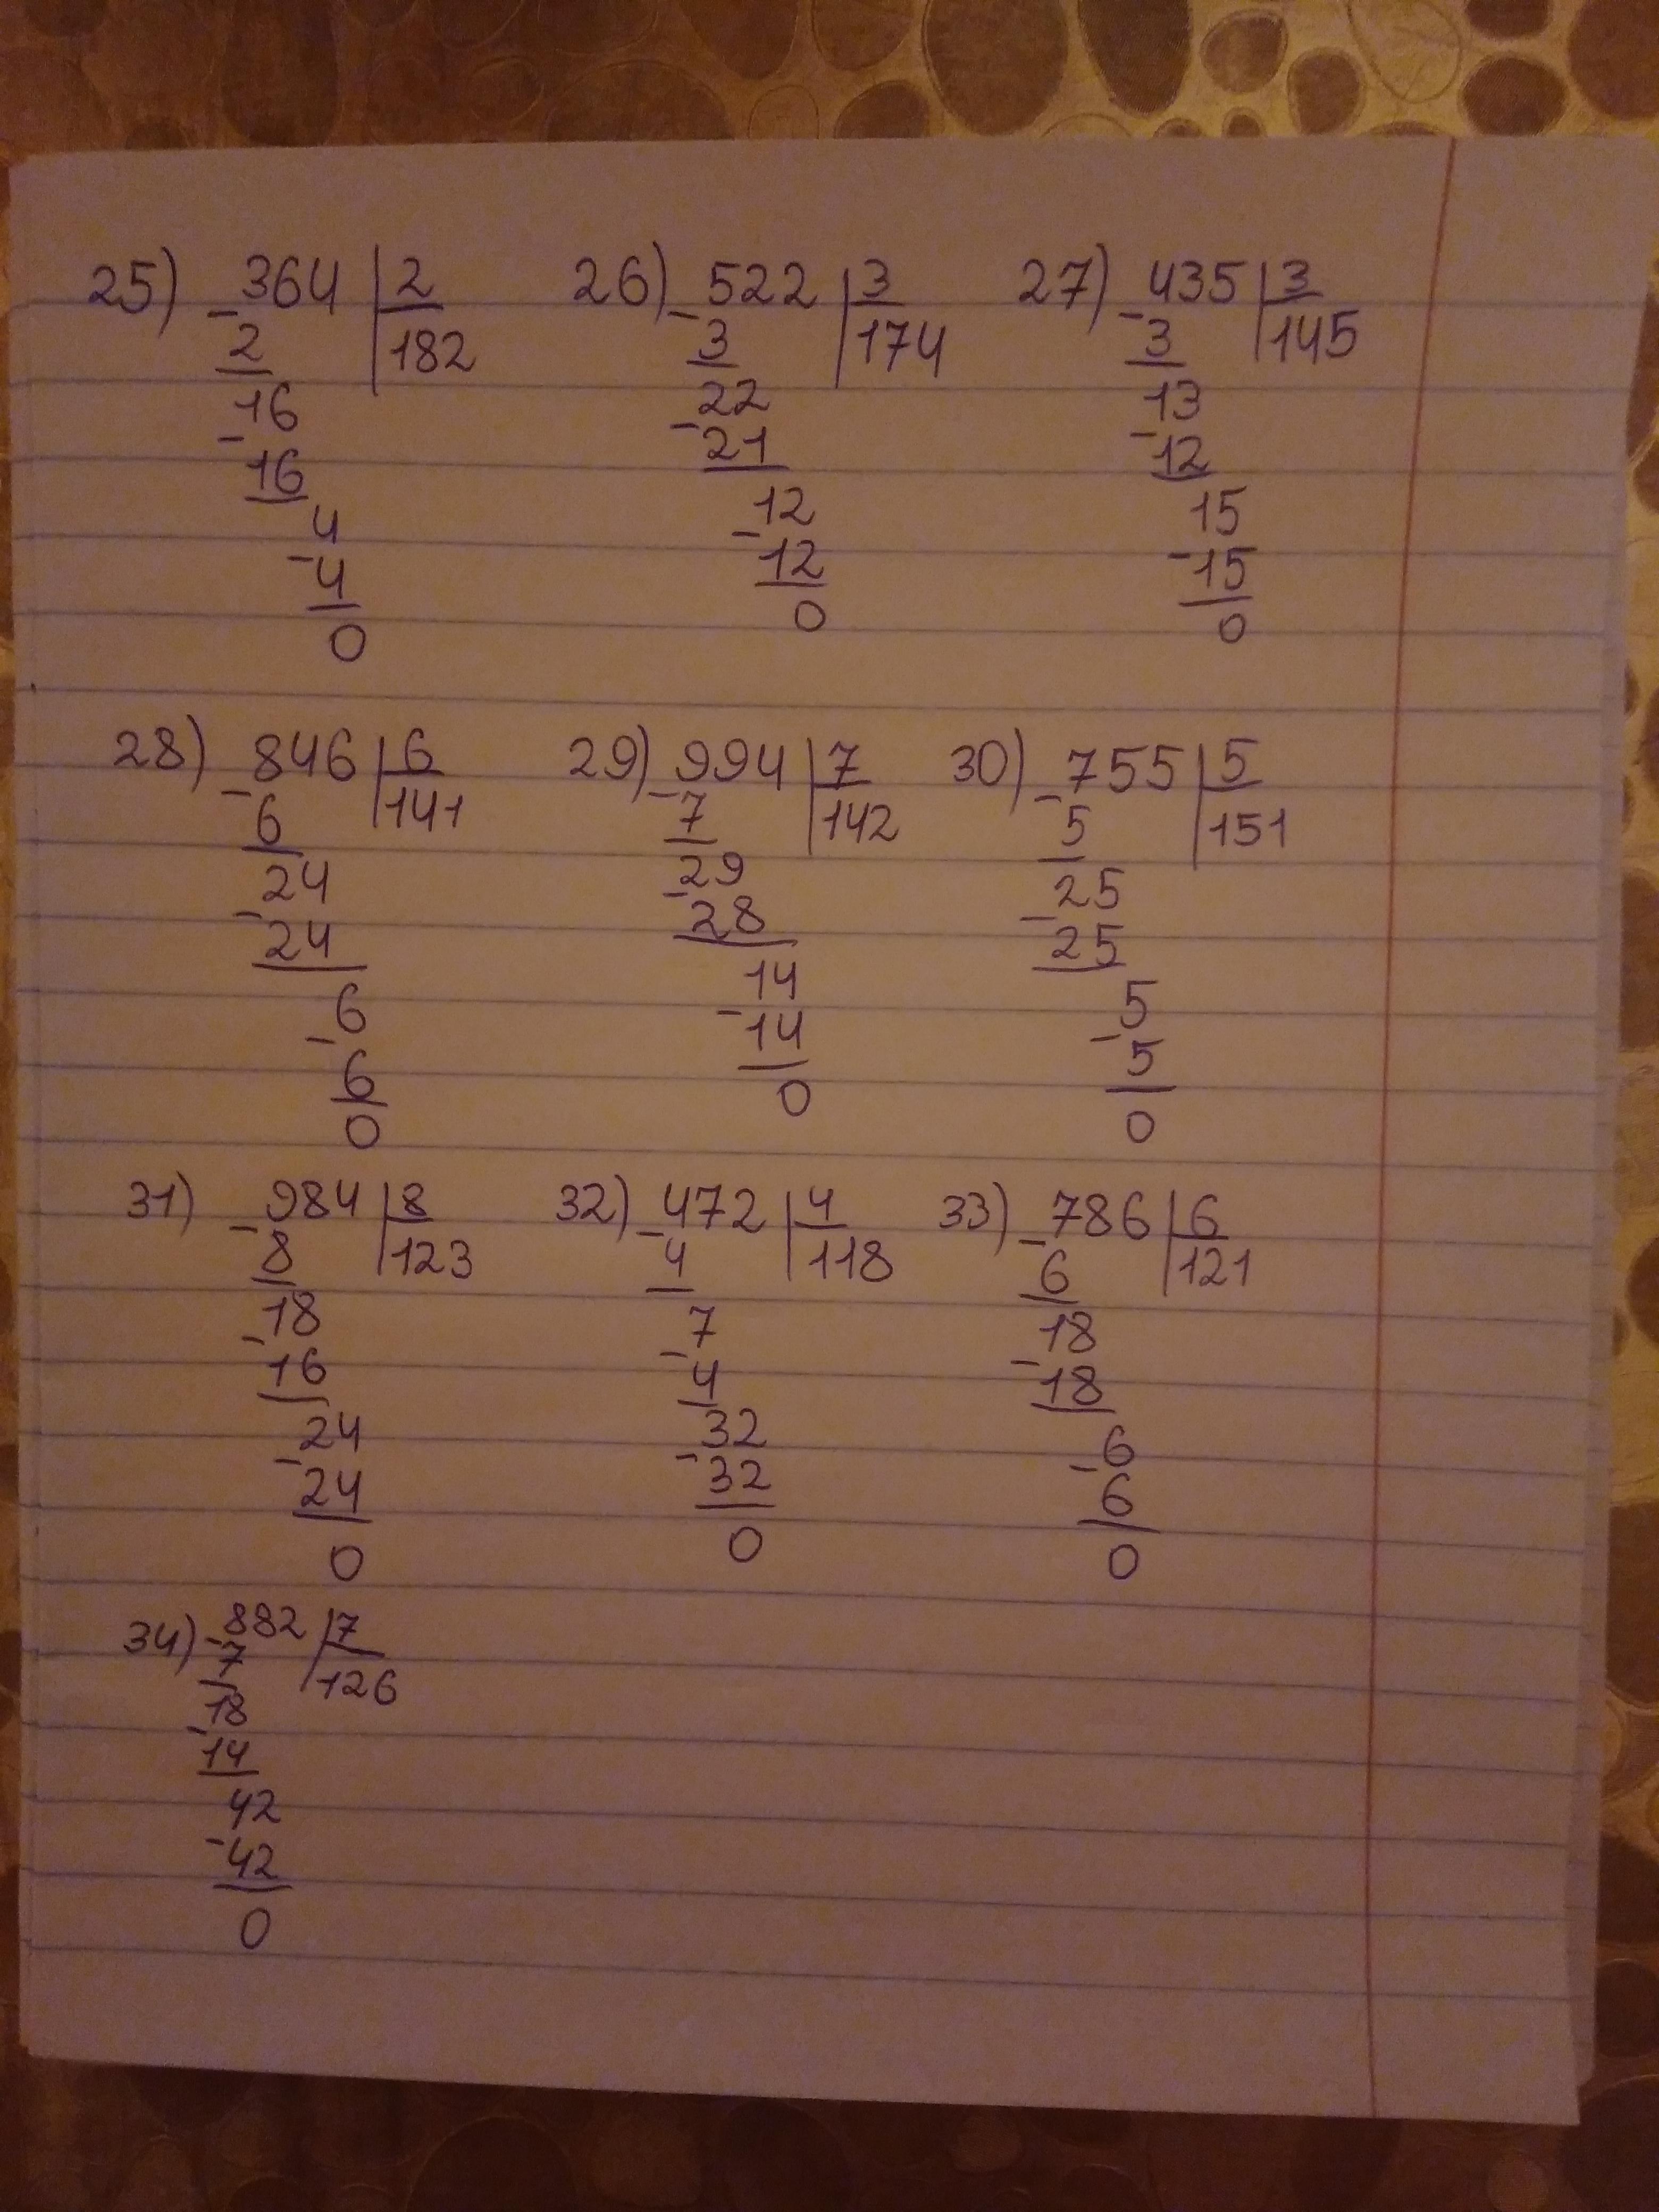 25) -364 | 2   26) -522 | 3   27) -435 | 3
2 | 182   3 | 174   3 | 145
16   22   13
-16   -21   -12
4   12   15
-4   -12   -15
0   0   0
28) -846 | 6   29) -994 | 7   30) -755 | 5
6 | 141   7 | 142   5 | 151
24   29   25
-24   -28   -25
6   14   5
-6   -14   -5
0   0   0
31) -984 | 8   32) -472 | 4   33) -786 | 6
8 | 123   4 | 118   6 | 121
18   7   18
-16   -4   -18
24   32   6
-24   -32   -6
0   0   0
34) -882 | 7
7 | 126
18
-14
42
-42
0